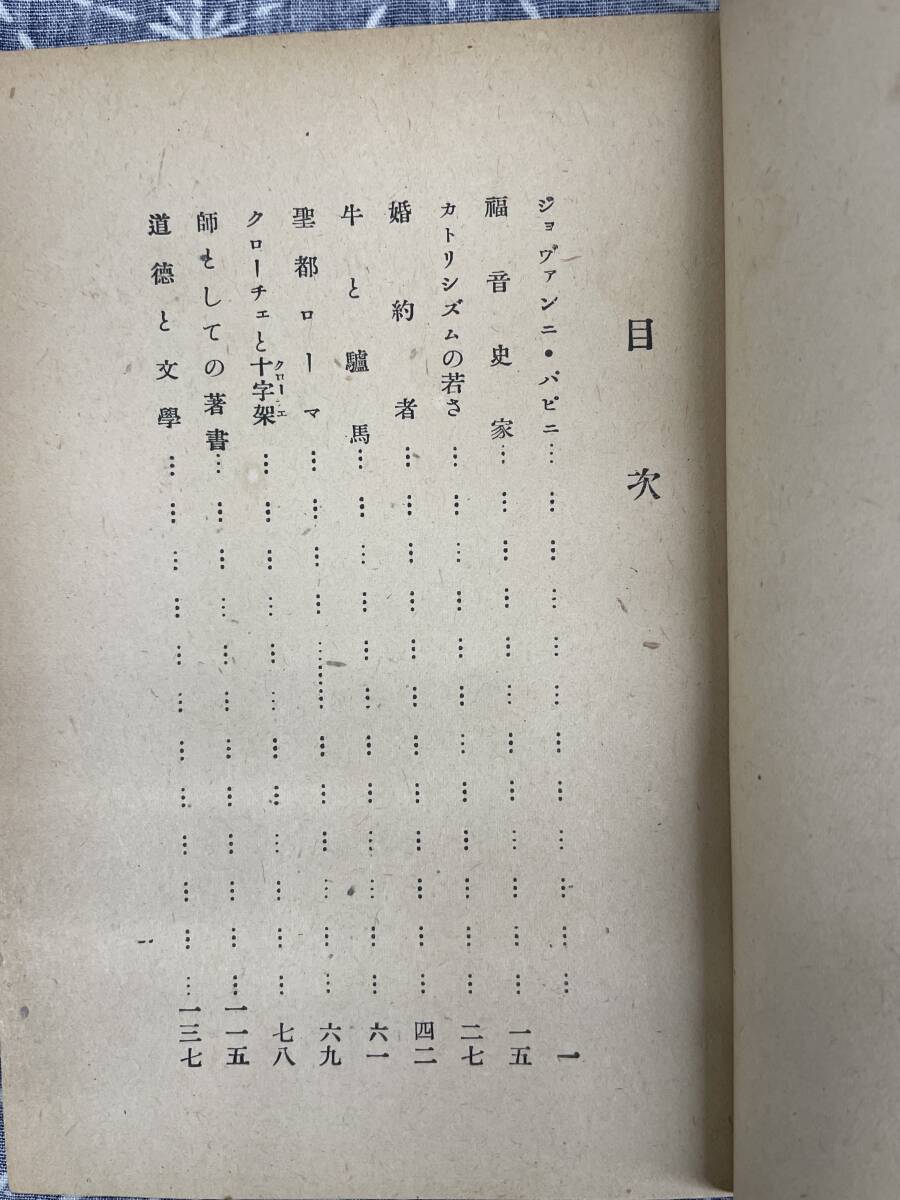 目次
ジョヴァンニ・パピニ……一
福音史家……一五
カトリシズムの若さ……二七
婚約者……四二
牛と驢馬……六一
聖都ローマ……六九
クローチェと十字架……七八
クローチェ
師としての著書……一一五
道德と文學……一三七